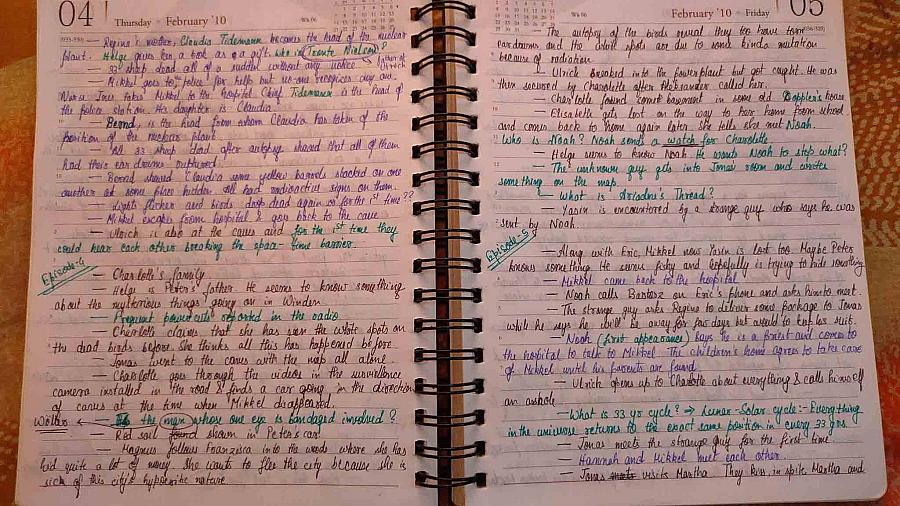 04
Thursday - February '10
Wk 06
— Regina's mother, Claudia Tidemann becomes the head of the nuclear
plant. Helge gives her a book as a gift who is Tronte Nielsen?
— 33 sheep dead all of a sudden without any notice father of Ulrich
— Mikkel goes to police for help but no-one recognises guy.
Nurse Ines takes Mikkel to the hospital. Chief Tidemann is the head of
the police station. His daughter is Claudia
— Bernd, is the head from whom Claudia has taken of the
position of the nuclear plant.
— All 33 sheep dead after autopsy showed that all of them
had their ear drums ruptured.
— Bernd showed Claudia some yellow barrels stacked on one
another at some place hidden all had radioactive signs on them.
— Lights flicker and birds drop dead again or for the 1st time??
— Mikkel escapes from hospital & goes back to the cave
— Ulrich is also at the caves and for the 1st time they
could hear each other breaking the space-time barrier.
Episode-4
— Charlotte's family
— Helge is Peter's father. He seems to know something
about the mysterious things going on in Winden
— Frequent power cuts reported in the radio
— Charlotte claims that she has seen the white spots on
the dead birds before. She thinks all this has happened before
— Jonas went to the caves with the map all alone.
— Charlotte goes through the videos in the surveillance
camera installed in the road & finds a car going in the direction
of caves at the time when Mikkel disappeared.
Wöller ← Is the man whose one eye is bandaged involved?
— Red soil found shown in Peter's car
— Magnus follows Franziska into the woods where she has
hid quite a lot of money she wants to flee the city because she is
sick of this city's hypocritic nature
Wk 06
February '10 - Friday
05
— The autopsy of the birds reveal they too have torn
eardrums and the white spots are due to some kinda mutation
because of radiation.
— Ulrich breaked into the powerplant but got caught. He was
then secured by Charlotte after Aleksander called her.
— Charlotte found some basement in some old Doppler's house
— Elisabeth gets lost on the way to her home from school
and comes back to home again later she tells she met Noah
Who is Noah? Noah sends a watch for Charlotte
— Helge seems to know Noah. He wants Noah to stop what?
— The unknown guy gets into Jonas' room and wrote
something on the map
— What is Ariadne's Thread?
— Yasin is encountered by a strange guy who says he was
sent by Noah.
Episode-5
— Along with Eric, Mikkel now Yasin is lost too. Maybe Peter
knows something. He seems fishy and hopefully is trying to hide something
— Mikkel came back to the hospital
— Noah calls Bartosz on Eric's phone and asks him to meet.
— The strange guy asks Regina to deliver some package to Jonas
while he says he will be away for few days but would to keep his suit.
— Noah (first appearance) says he is a priest and comes to
the hospital to talk to Mikkel. The children's home agrees to take care
of Mikkel until his parents are found
— Ulrich opens up to Charlotte about everything & calls himself
an asshole
— What is 33 yr cycle? → Lunar-Solar cycle:- Everything
in the universe returns to the exact same position in every 33 yrs.
— Jonas meets the strange guy for the first time
— Hannah and Mikkel meet each other
— Jonas visits Martha. They kiss in spite Martha and